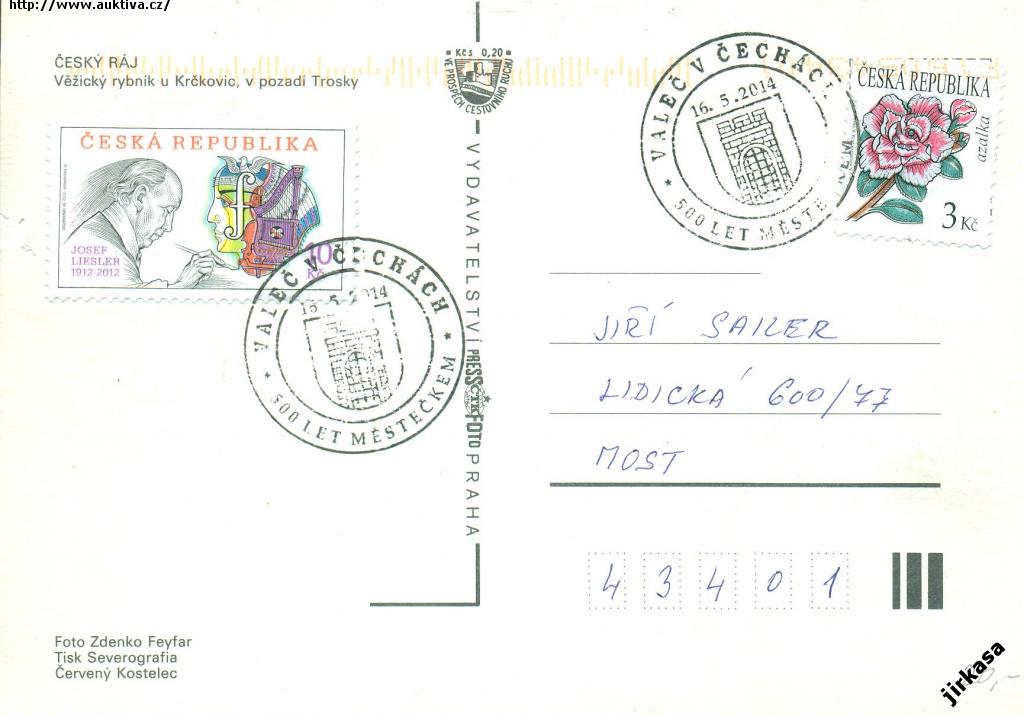 http://www.auktiva.cz/
ČESKÝ RÁJ
Věžický rybník u Krčkovic, v pozadí Trosky
Kčs 0,20
VE PROSPĚCH CESTOVNÍHO RUCHU
ČESKÁ REPUBLIKA
JOSEF
LIESLER
1912-2012
10
Kč
* VALEČ V ČECHÁCH *
16.5.2014
500 LET MĚSTEČKEM
VYDAVATELSTVÍ PRESSFOTO PRAHA
ČTK
* VALEČ V ČECHÁCH
16.5.2014
500 LET MĚSTE KEM
ČESKÁ REPUBLIKA
azalka
3 Kč
JIŘÍ SAILER
LIDICKÁ 600/77
MOST
43401
Foto Zdenko Feyfar
Tisk Severografia
Červený Kostelec
jirkasa